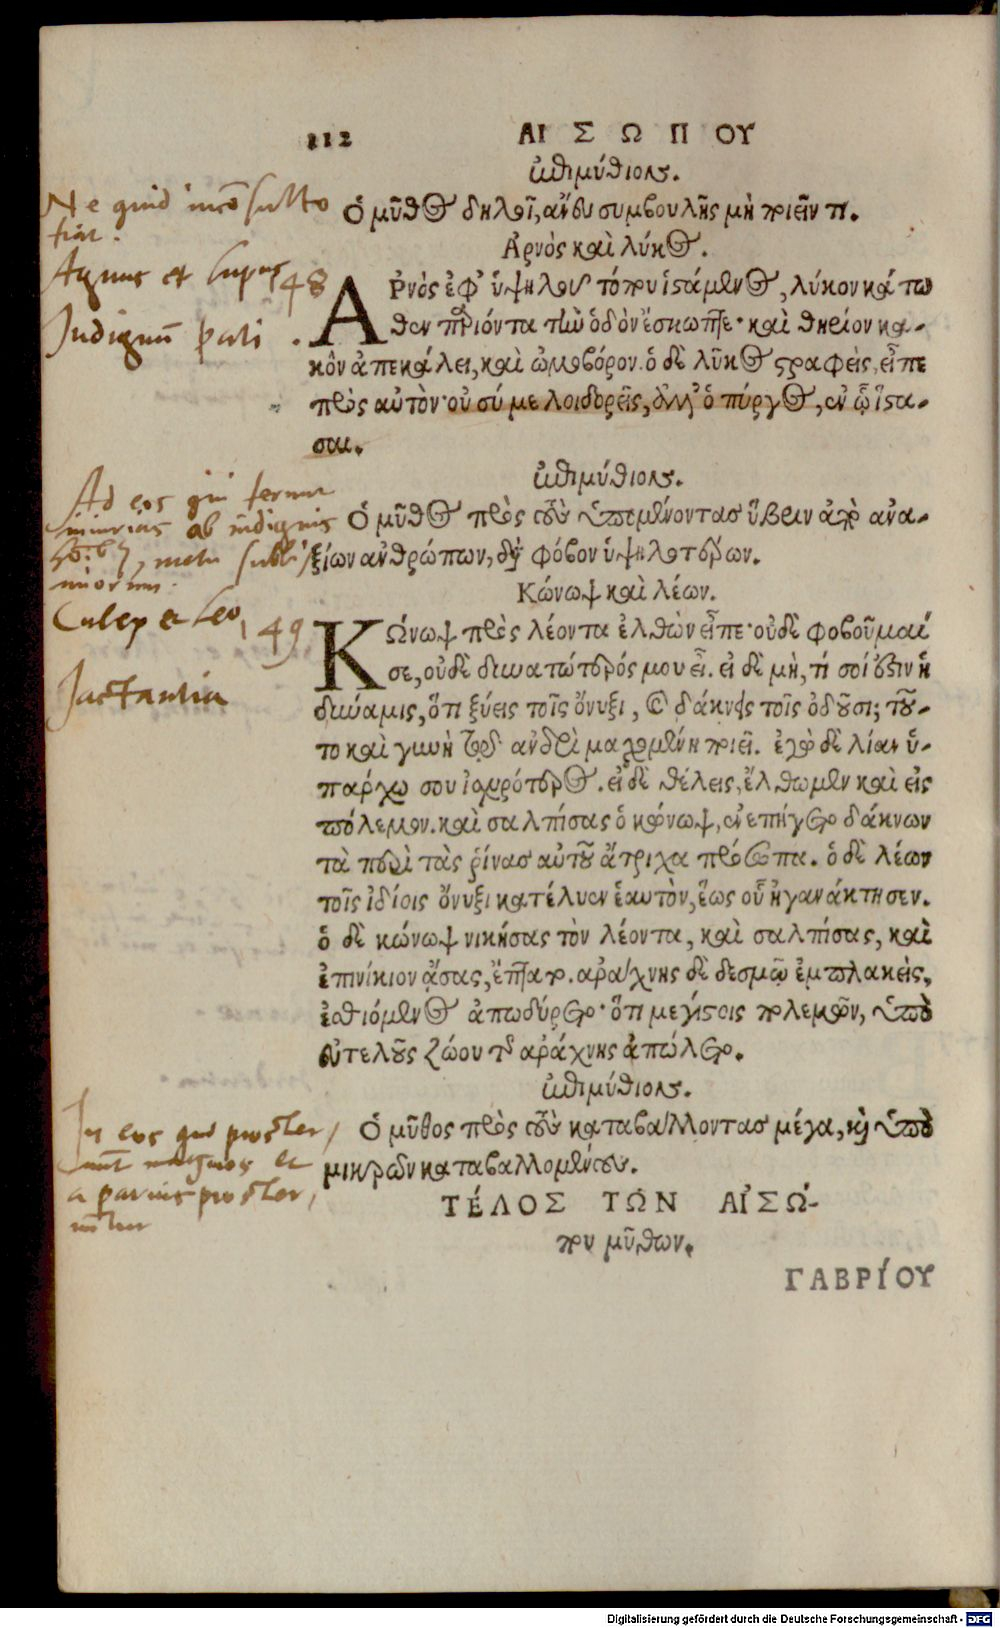 112 ΑΙΣΩΠΟΥ
ἐπιμύθιον.
Ne quid inconsulto
Ὁ μῦθος δηλοῖ, ἄνευ συμβουλῆς μὴ ποιεῖν τι.
fiat.
Ἀρνὸς καὶ λύκος.
Agnus et Lupus 148
ΑΡνὸς ἐφ' ὑψηλοῦ τόπου ἱστάμενος, λύκον κάτω
Indignum pati.
θεν παριόντα τὴν ὁδὸν ἔσκωπτε· καὶ θηρίον κα-
κὸν ἀπεκάλει, καὶ ὠμοβόρον. ὁ δὲ λῦκος στραφεὶς, εἶπε
πρὸς αὐτὸν· οὐ σύ με λοιδορεῖς, ἀλλ' ὁ πύργος, ἐν ᾧ ἵστα-
σαι.
ἐπιμύθιον.
Ad eos qui ferunt
iniurias ab indignis
Ὁ μῦθος πρὸς τοὺς ὑπομένοντας ὕβριν ἀπὸ ἀνα-
hoibus, metu subli
ξίων ἀνθρώπων, διὰ φόβον ὑψηλοτέρων.
miorum.
Κώνωψ καὶ λέων.
Culex et Leo, 149
ΚΩνωψ πρὸς λέοντα ἐλθὼν εἶπε· οὐδὲ φοβοῦμαί
σε, οὐδὲ δυνατώτερός μου εἶ. εἰ δὲ μὴ, τί σοί ἐστιν ἡ
Jactantia
δύναμις, ὅτι ξύεις τοῖς ὄνυξι, καὶ δάκνεις τοῖς ὀδοῦσι; τοῦ-
το καὶ γυνὴ τῷ ἀνδρὶ μαχομένη ποιεῖ. ἐγὼ δὲ λίαν ὑ-
πάρχω σου ἰσχυρότερος. εἰ δὲ θέλεις, ἔλθωμεν καὶ εἰς
πόλεμον. καὶ σαλπίσας ὁ κώνωψ, ἐνεπήγετο δάκνων
τὰ περὶ τὰς ῥίνας αὐτοῦ ἄτριχα πρόσωπα. ὁ δὲ λέων
τοῖς ἰδίοις ὄνυξι κατέλυεν ἑαυτὸν, ἕως οὗ ἠγανάκτησεν.
ὁ δὲ κώνωψ νικήσας τὸν λέοντα, καὶ σαλπίσας, καὶ
ἐπινίκιον ᾄσας, ἔπτατο. ἀράχνης δὲ δεσμῷ ἐμπλακεὶς,
ἐσθιόμενος ἀπωδύρετο· ὅτι μεγίστοις πολεμῶν, ὑπὸ
εὐτελοῦς ζώου τῆς ἀράχνης ἀπώλετο.
ἐπιμύθιον.
In eos qui proster,
Ὁ μῦθος πρὸς τοὺς καταβάλλοντας μέγα, καὶ ὑπὸ
nunt magnos et
μικρῶν καταβαλλομένους.
a parvis proster,
ΤΈΛΟΣ ΤΩ͂Ν ΑἸΣΏ-
nuntur
που μῦθων.
ΓΑΒΡΊΟΥ
Digitalisierung gefördert durch die Deutsche Forschungsgemeinschaft - DFG